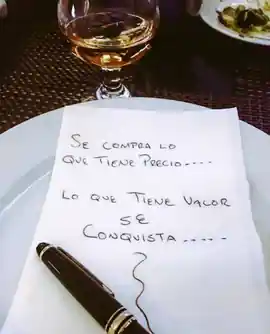 SE COMPRA LO
QUE TIENE PRECIO....
LO QUE TIENE VALOR
SE
CONQUISTA.....